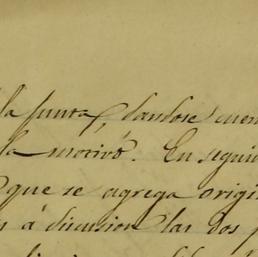 la junta, dandose cuen
la motivó. En seguid
que se agrega origi
a discusion las dos p